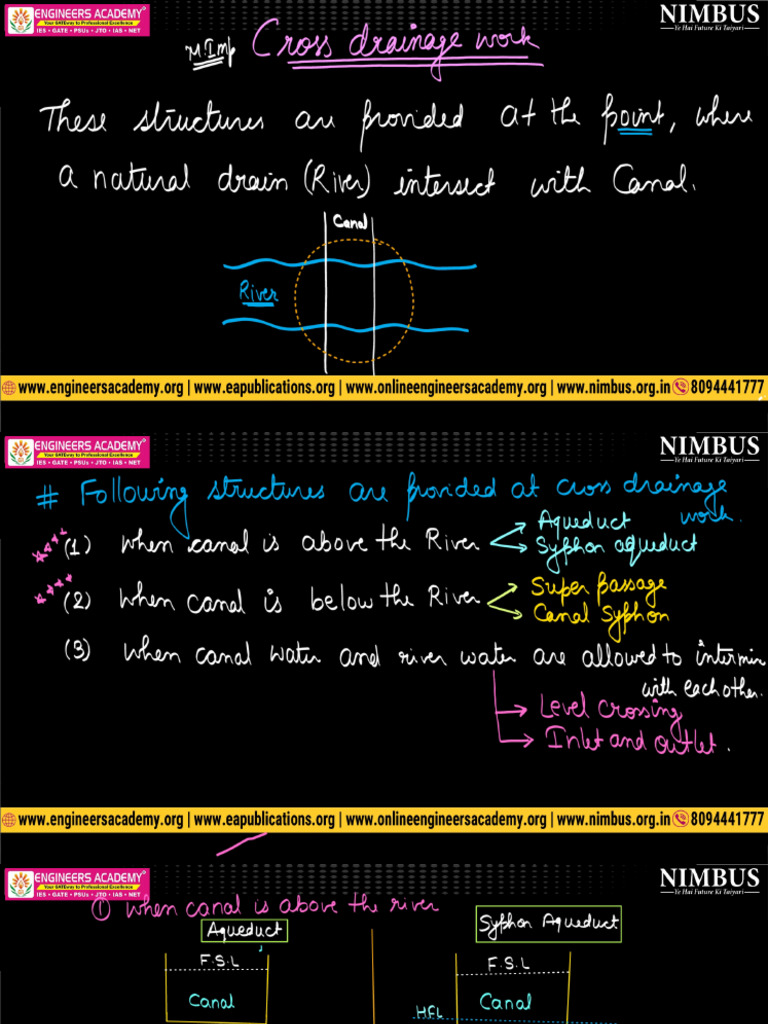 ENGINEERS ACADEMY
Your GATEway to Professional Excellence
IES • GATE • PSUs • JTO • IAS • NET
NIMBUS
Ye Hai Future Ki Taiyari
M.Imp Cross drainage work
These structures are provided at the point, where
a natural drain (River) intersect with Canal.
Canal
River
www.engineersacademy.org | www.eapublications.org | www.onlineengineersacademy.org | www.nimbus.org.in 8094441777
ENGINEERS ACADEMY
Your GATEway to Professional Excellence
IES • GATE • PSUs • JTO • IAS • NET
NIMBUS
Ye Hai Future Ki Taiyari
# Following structures are provided at cross drainage
work.
(1) when canal is above the River
Aqueduct
Syphon aqueduct
(2) when canal is below the River
Super passage
Canal Syphon
(3) when canal water and river water are allowed to intermix
with each other.
Level crossing
Inlet and outlet.
www.engineersacademy.org | www.eapublications.org | www.onlineengineersacademy.org | www.nimbus.org.in 8094441777
ENGINEERS ACADEMY
Your GATEway to Professional Excellence
IES • GATE • PSUs • JTO • IAS • NET
NIMBUS
Ye Hai Future Ki Taiyari
① when canal is above the river
Aqueduct
Syphon Aqueduct
F.S.L
F.S.L
Canal
HFL
Canal